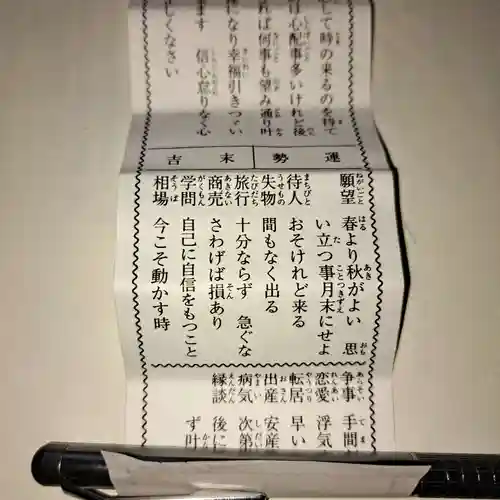 して時の来るのを待て
は心配事多いけれど後
れば何事も望み通り叶
になり幸福引きつゞい
ます 信心怠りなく心
しくなさい
運勢 末吉
願望 春より秋がよい 思
い立つ事月末にせよ
待人 おそけれど来る
失物 間もなく出る
旅行 十分ならず 急ぐな
商売 さわげば損あり
学問 自己に自信をもつこと
相場 今こそ動かす時
争事 手間
恋愛 浮気
転居 早い
出産 安産
病気 次第
縁談 後に
ず叶